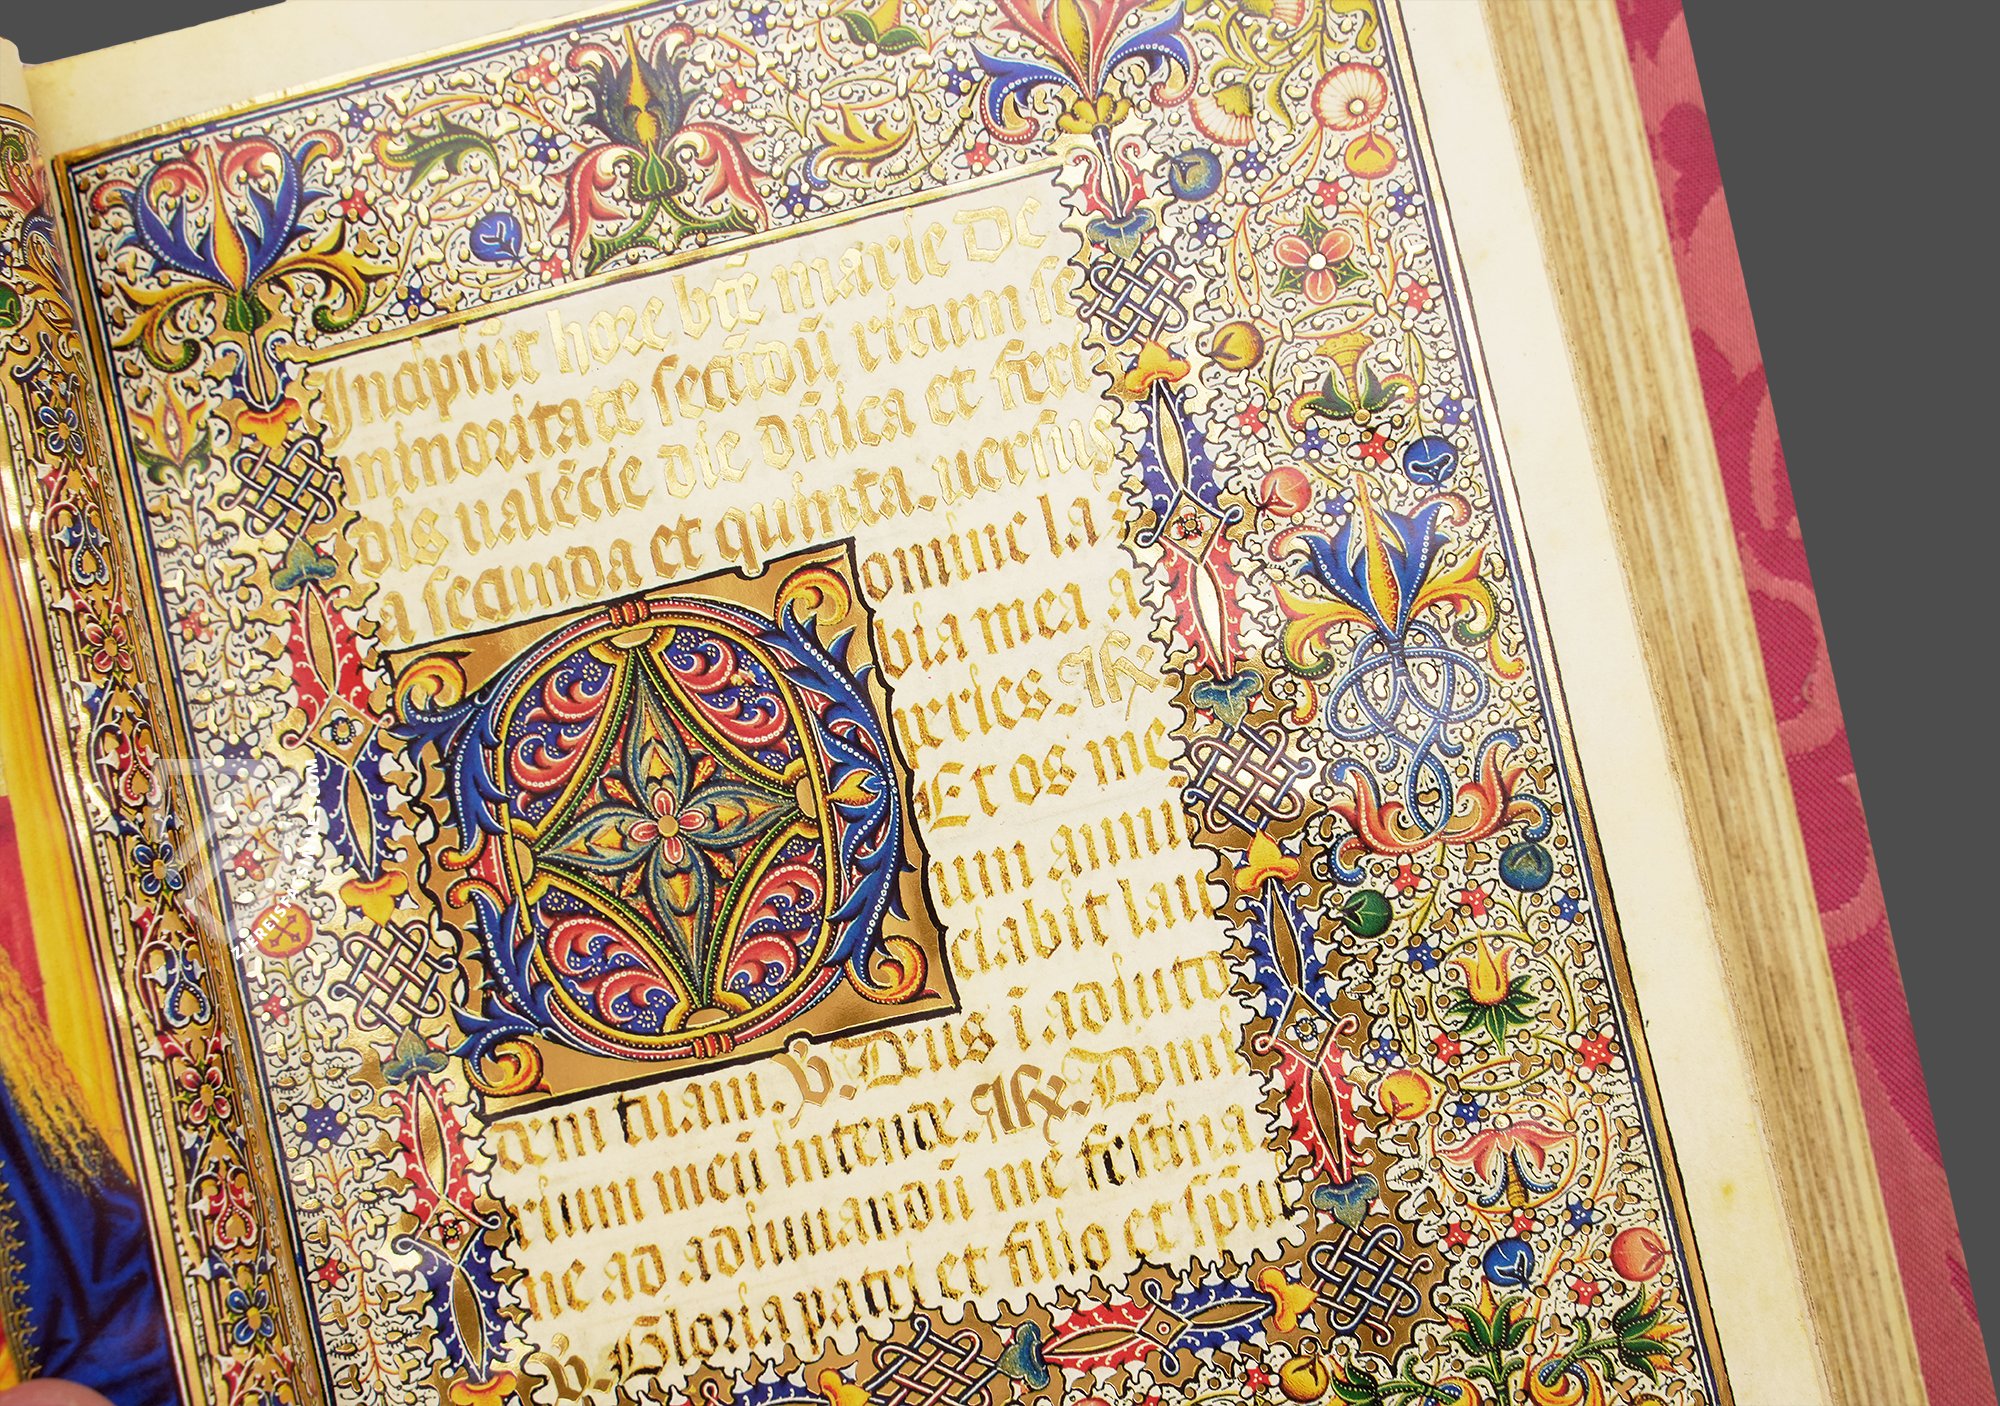 Incipiūt hore btē marie de
minoritate secūdū ritum se
dis ualēcie die dn̄ica et feri
a secunda et quinta. uersus
Domine la
bia mea a
peries. R̄.
Et os me
um annu
ciabit lau
dem tuam. V̄. Deus ī adiuto
rium meū intende. R̄. Domi
ne ad adiuuandū me festina
V̄. Gloria patri et filio et spūi
ZIEREIS FACSIMILES.COM